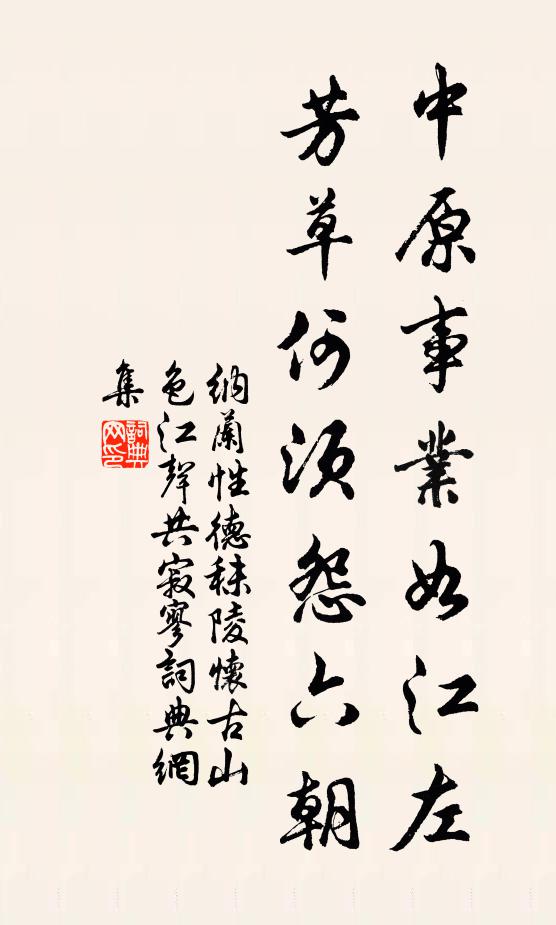 中原事業如江左
芳草何須怨六朝
納蘭性德秣陵懷古山
色江聲共寂寥詞典網
集
詞典网印